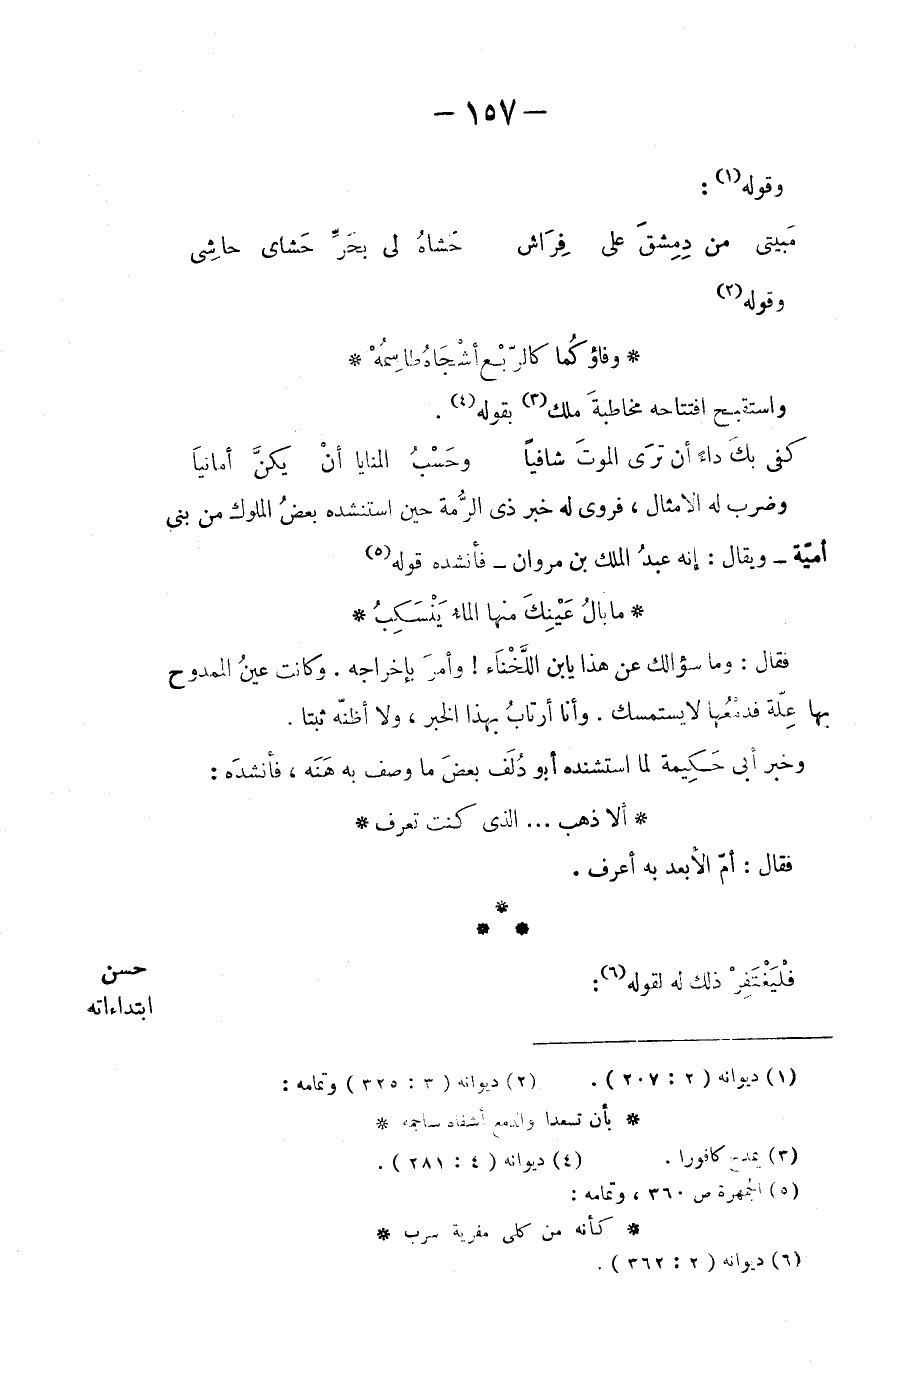 — ١٥٧ —
وقوله(١) :
مَبيتى من دِمِشقَ على فِرَاش حَشاهُ لى بحَرِّ حَشاى حاشِى
وقوله(٢)
* وفاؤكُما كالرّبْع أشْجَاهُ طاسِمُهْ *
واستقبح افتتاحه مخاطبةَ ملك(٣) بقوله(٤) .
كفى بكَ داءً أن ترَى الموتَ شافياً وحَسْبُ المنايا أنْ يكنَّ أمانياَ
وضرب له الامثال ، فروى له خبر ذى الرُّمة حين استنشده بعضُ الملوك من بنى
أميّة ــ ويقال : إنه عبدُ الملك بن مروان ــ فأنشده قوله(٥)
* مابالُ عَيْنِكَ منها الماءُ يَنْسَكِبُ *
فقال : وما سؤالك عن هذا يابن اللَّخْنَاء ! وأمرَ بإخراجه . وكانت عينُ الممدوح
بها عِلّة فدمْعُها لايستمسك . وأنا أرتابُ بهذا الخبر ، ولا أظنّه ثبتا .
وخبر أبى حَكِيمة لما استشنده أبو دُلَف بعضَ ما وصف به هَنَه ، فأنشدَه :
* ألا ذهب ... الذى كنت تعرف *
فقال : أمّ الأبعد به أعرف .
* * *
فلْيَغْتَفِرْ ذلك له لقوله(٦):
حسن
ابتداءاته
(١) ديوانه ( ٢ : ٢٠٧ ) . (٢) ديوانه ( ٣ : ٣٢٥ ) وتمامه :
* بأن تسعدا والدمع أشفاه ساجمه *
(٣) يمدح كافورا . (٤) ديوانه ( ٤ : ٢٨١ ) .
(٥) الجمهرة ص ٣٦٠ ، وتمامه :
* كأنه من كلى مفرية سرب *
(٦) ديوانه ( ٢ : ٣٦٢ ) .